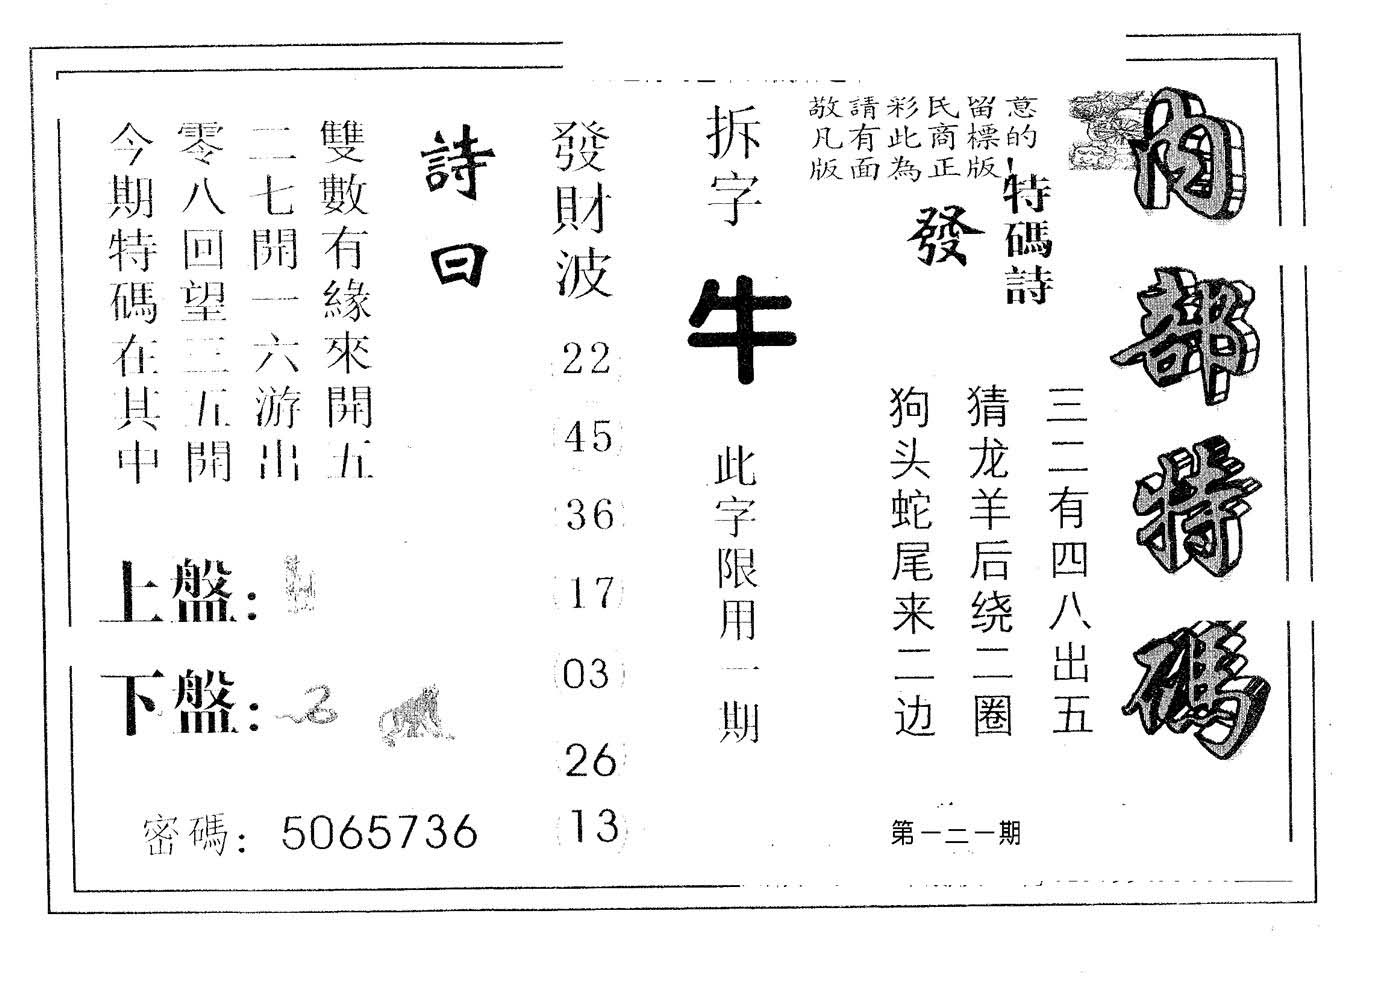 內部特碼
敬請彩民留意
凡有此商標的
版面為正版
特碼詩
發
三二有四八出五
猜龙羊后绕二圈
狗头蛇尾来二边
第一二一期
拆字
牛
此字限用一期
發財波
22
45
36
17
03
26
13
詩曰
雙數有緣來開五
二七開一六游出
零八回望三五開
今期特碼在其中
上盤：
下盤：
密碼：5065736